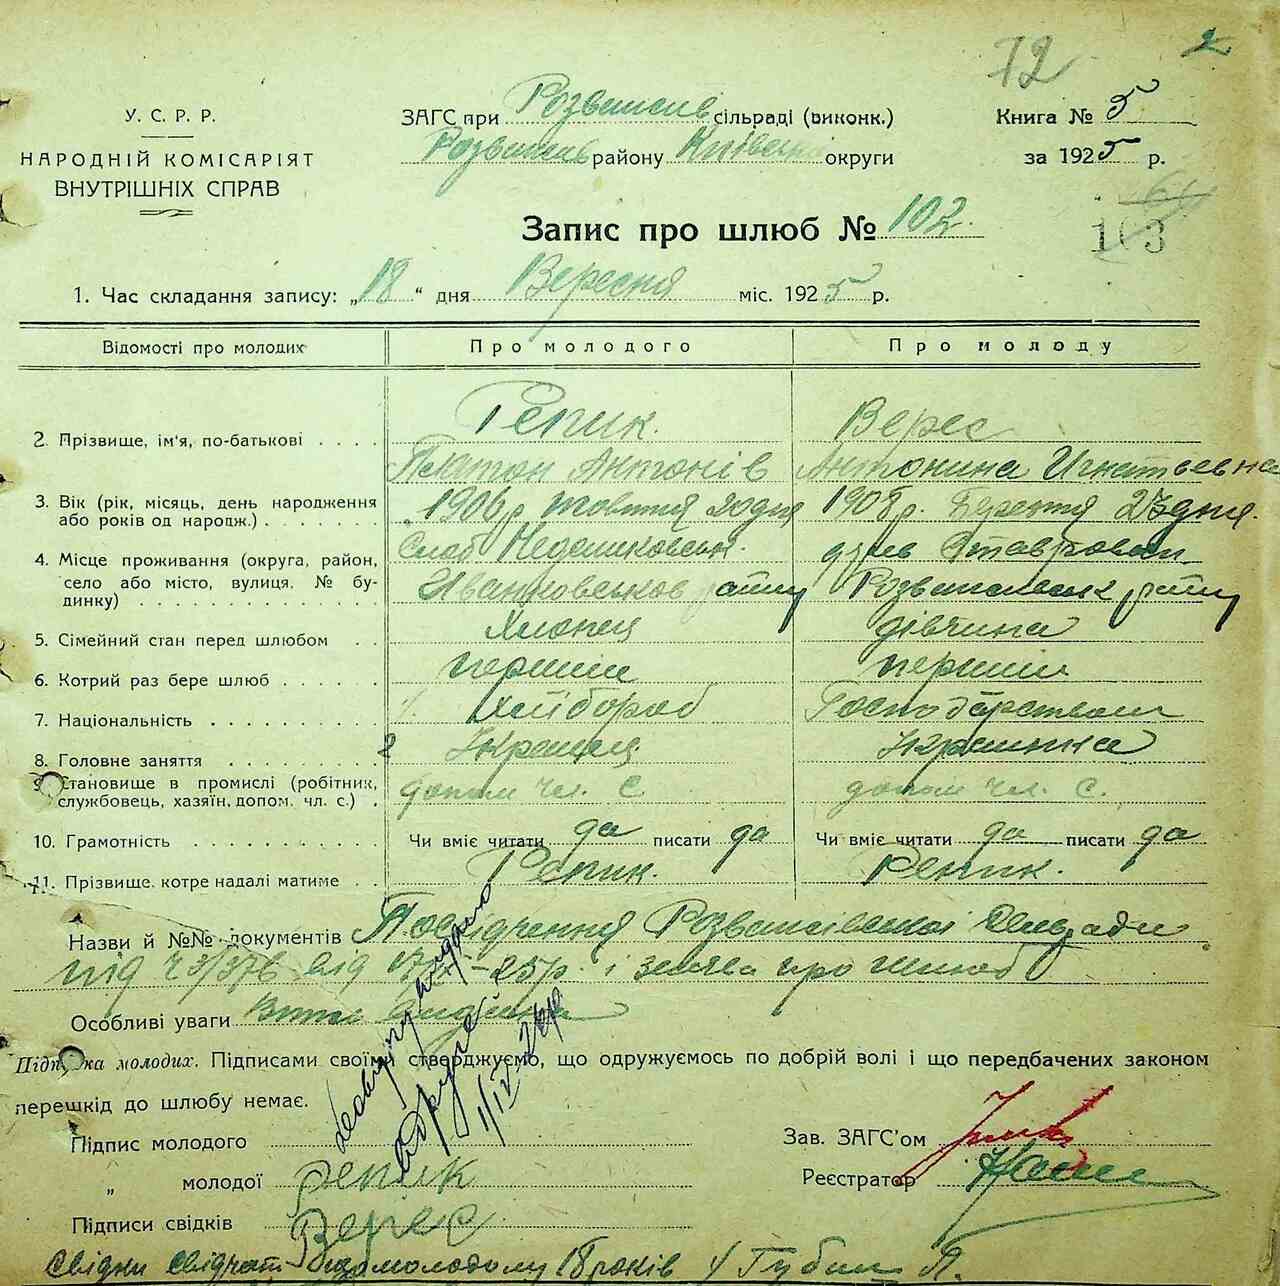 72
2
У. С. Р. Р.
НАРОДНІЙ КОМІСАРІЯТ
ВНУТРІШНІХ СПРАВ
ЗАГС при Розважів сільраді (виконк.)
Розважів району Київськ округи
Книга № 5
за 1925 р.
64
103
Запис про шлюб № 102
1. Час складання запису: „18“ дня Вересня міс. 1925 р.
Відомості про молодих
Про молодого
Про молоду
2. Прізвище, ім'я, по-батькові
Репик
Верес
Платон Антонів
Антонина Игнатьевна
3. Вік (рік, місяць, день народження або років од народж.)
1906 р жовтня 20 дня
1908 р. Березня 27 дня.
4. Місце проживання (округа, район, село або місто, вулиця. № будинку)
Слоб
Иванковськов району
Розважівськ району
5. Сімейний стан перед шлюбом
Хлопец
дівчина
6. Котрий раз бере шлюб
перший
перший
7. Національність
1. Хлібороб
Господарством
8. Головне заняття
2 Украінец
Украинка
9. Становище в промислі (робітник, службовець, хазяїн, допом. чл. с.)
допом чл. С
допом чл. С.
10. Грамотність
Чи вміє читати да писати да
Чи вміє читати да писати да
11. Прізвище, котре надалі матиме
Репик.
Репик.
Назви й №№ документів Посвідчення Розважівської Сільради
під ч 3/376 від 17/ІХ-25 р. і заява про шлюб
Особливі уваги
Підписка молодих. Підписами своїми стверджуємо, що одружуємось по добрій волі і що передбачених законом
перешкід до шлюбу немає.
Підпис молодого
Зав. ЗАГС'ом
„ молодої Репик
Реєстратор
Підписи свідків Верес
Свідки свідчат що молодому 18 років